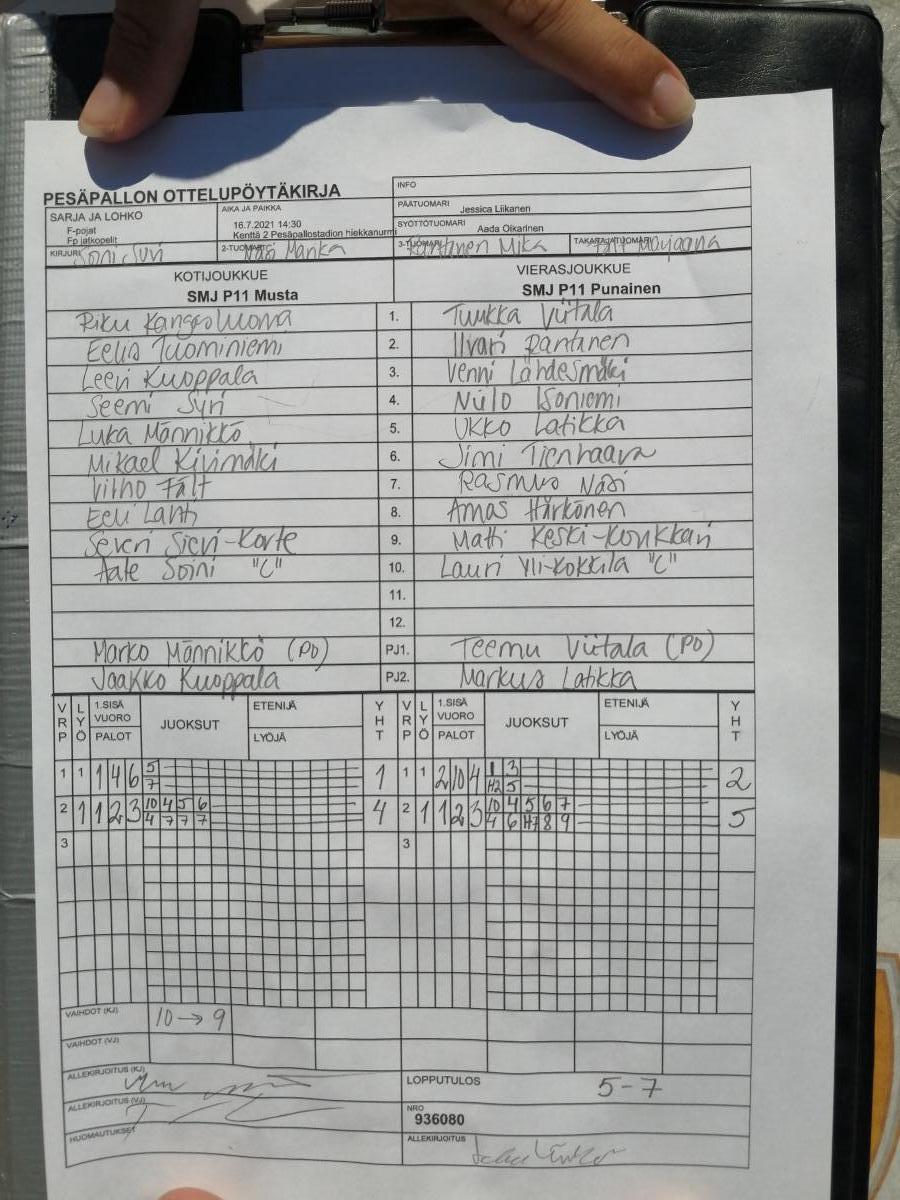 PESÄPALLON OTTELUPÖYTÄKIRJA
INFO
SARJA JA LOHKO
F-pojat
Fp jatkopelit
AIKA JA PAIKKA
16.7.2021 14:30
Kenttä 2 Pesäpallostadion hiekkanurmi
PÄÄTUOMARI Jessica Liikanen
SYÖTTÖTUOMARI Aada Oikarinen
KIRJURI Soni Syri 2-TUOMARI Näsi Marika 3-TUOMARI Rantanen Mika TAKARAJATUOMARI Fält Marjaana
KOTIJOUKKUE
SMJ P11 Musta
VIERASJOUKKUE
SMJ P11 Punainen
Riku Kangasluoma 1. Tuukka Viitala
Eelis Tuominiemi 2. Ilvari Rantanen
Leevi Kuoppala 3. Venni Lähdesmäki
Seemi Syri 4. Niilo Isoniemi
Luka Männikkö 5. Ukko Latikka
Mikael Kivimäki 6. Jimi Tienhaara
Vilho Fält 7. Rasmus Näsi
Eeli Lahti 8. Amos Härkönen
Severi Sievi-Korte 9. Matti Keski-Konkkari
Aate Soini "C" 10. Lauri Yli-Kokkila "C"
11.
12.
Marko Männikkö (PD) PJ1. Teemu Viitala (PD)
Jaakko Kuoppala PJ2. Markus Latikka
VRP LYÖ 1.SISÄ VUORO PALOT JUOKSUT ETENIJÄ LYÖJÄ YHT VRP LYÖ 1.SISÄ VUORO PALOT JUOKSUT ETENIJÄ LYÖJÄ YHT
1 1 1 4 6 5 1 1 1 2 10 4 1 3 2
7 H2 5
2 1 1 2 3 10 4 5 6 4 2 1 1 2 3 10 4 5 6 7 5
4 7 7 7 4 6 H7 8 9
3 3
VAIHDOT (KJ) 10 → 9
VAIHDOT (VJ)
ALLEKIRJOITUS (KJ) LOPPUTULOS 5-7
ALLEKIRJOITUS (VJ) NRO
936080
HUOMAUTUKSET ALLEKIRJOITUS